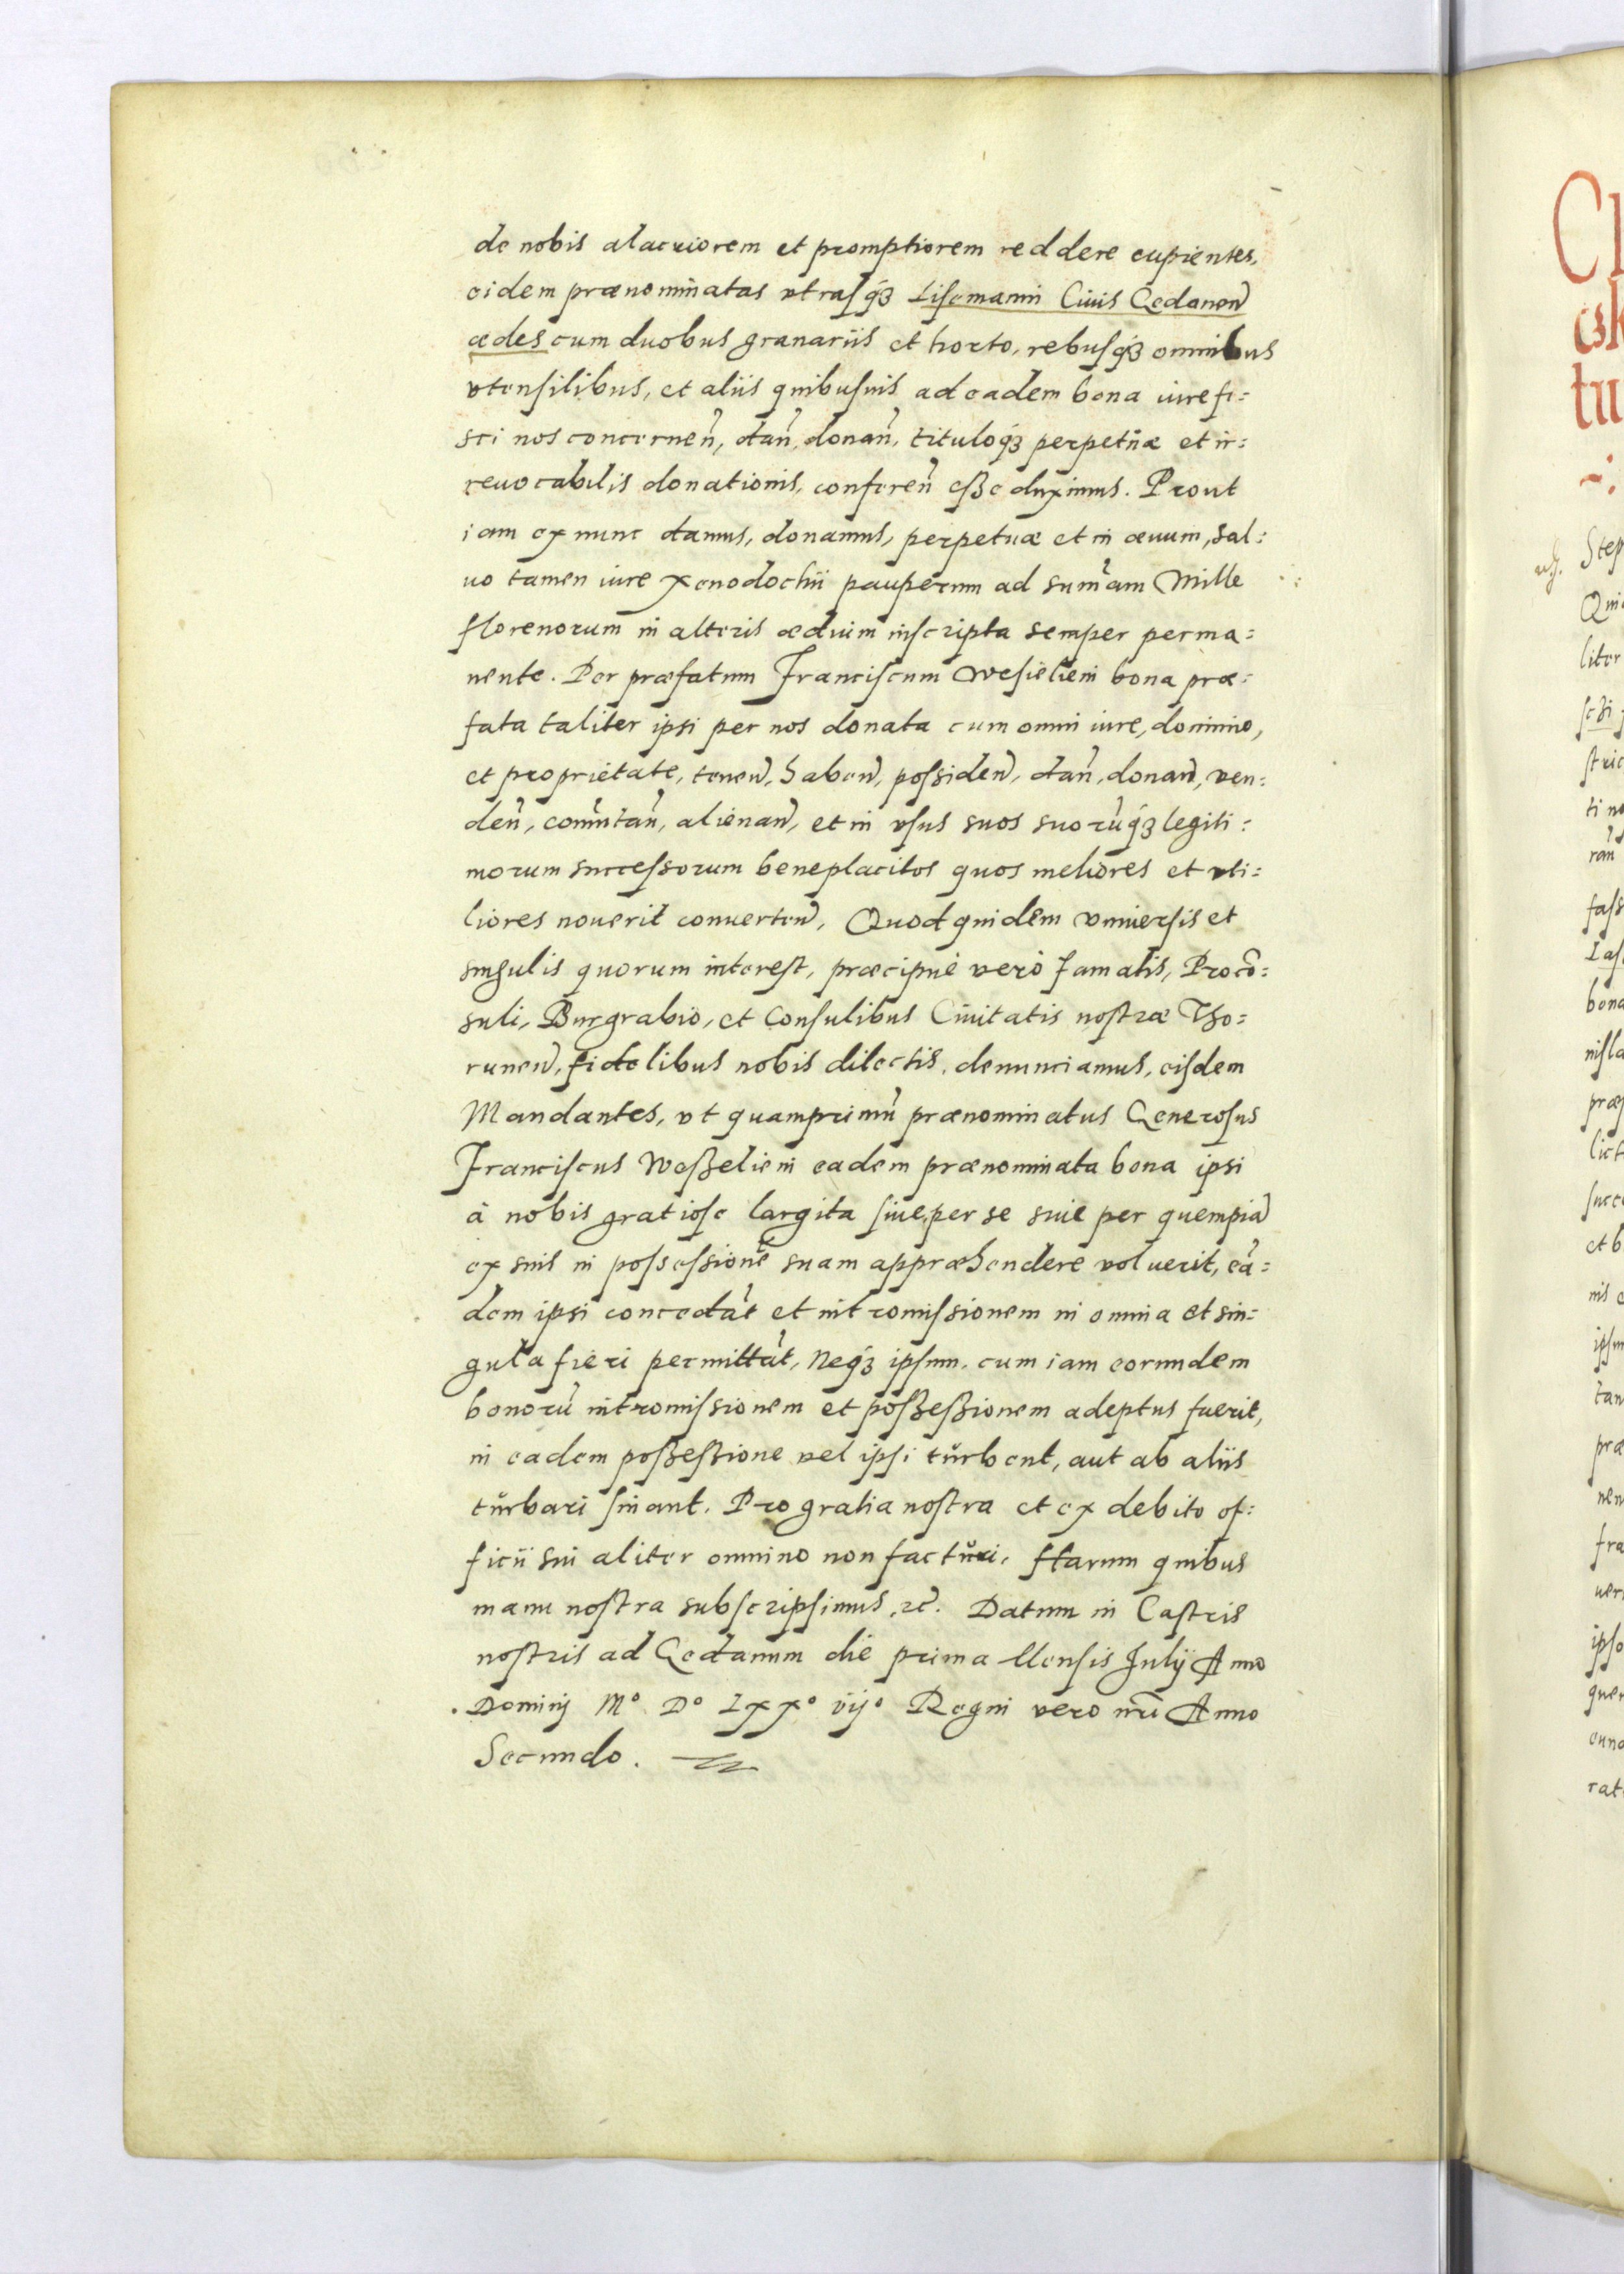 de nobis alacriorem et promptiorem reddere cupientes,
eidem prænominatas vtrasq́ꝫ Lisemanni Ciuis Gedanen̄
ædes cum duobus granariis et horto, rebusq́ꝫ omnibus
vtensilibus, et aliis quibusuis ad eadem bona iure fi:
sci nos concernen̄, dan̄, donan̄, tituloq́ꝫ perpetuæ et ir:
reuocabilis donationis, conferen̄ eße duximus. Prout
iam ex nunc damus, donamus, perpetuæ et in æuum, sal:
uo tamen iure xenodochii pauperum ad sum̄am Mille
florenorum in alteris ædium inscripta semper perma:
nente. Per præfatum Franciscum Wesseliem bona præ:
fata taliter ipsi per nos donata cum omni iure, dominio,
et proprietate, tenen̄, haben̄, possiden̄, dan̄, donan̄, ven:
den̄, com̄utan̄, alienan̄, et in vsus suos suorūq́ꝫ legiti:
morum successorum beneplacitos quos meliores et vti:
liores nouerit conuerten̄. Quod quidem vniuersis et
singulis quorum interest, præcipuè verò Famatis, Procō:
suli, Burgrabio, et Consulibus Ciuitatis nostræ Tho:
runen̄, fidelibus nobis dilectis, denunciamus, eisdem
Mandantes, vt quamprimū prænominatus Generosus
Franciscus Weßeliem eadem prænominata bona ipsi
à nobis gratiose largita siue per se siue per quempiā
ex suis in possessionē suam appræhendere voluerit, eā:
dem ipsi concedāt et intromissionem in omnia et sin:
gula fieri permittāt, Neq́ꝫ ipsum, cum iam eorundem
bonorū intromissionem et poßeßionem adeptus fuerit,
in eadem poßeßione vel ipsi turbent, aut ab aliis
turbari sinant. Pro gratia nostra et ex debito of:
ficii sui aliter omnino non facturi, Harum quibus
manu nostra subscripsimus, ꝛc̄. Datum in Castris
nostris ad Gedanum die prima Mensis Julÿ Anno
Dominj Mº Dº Lxxº vijº Regni vero nr̄i Anno
Secundo.